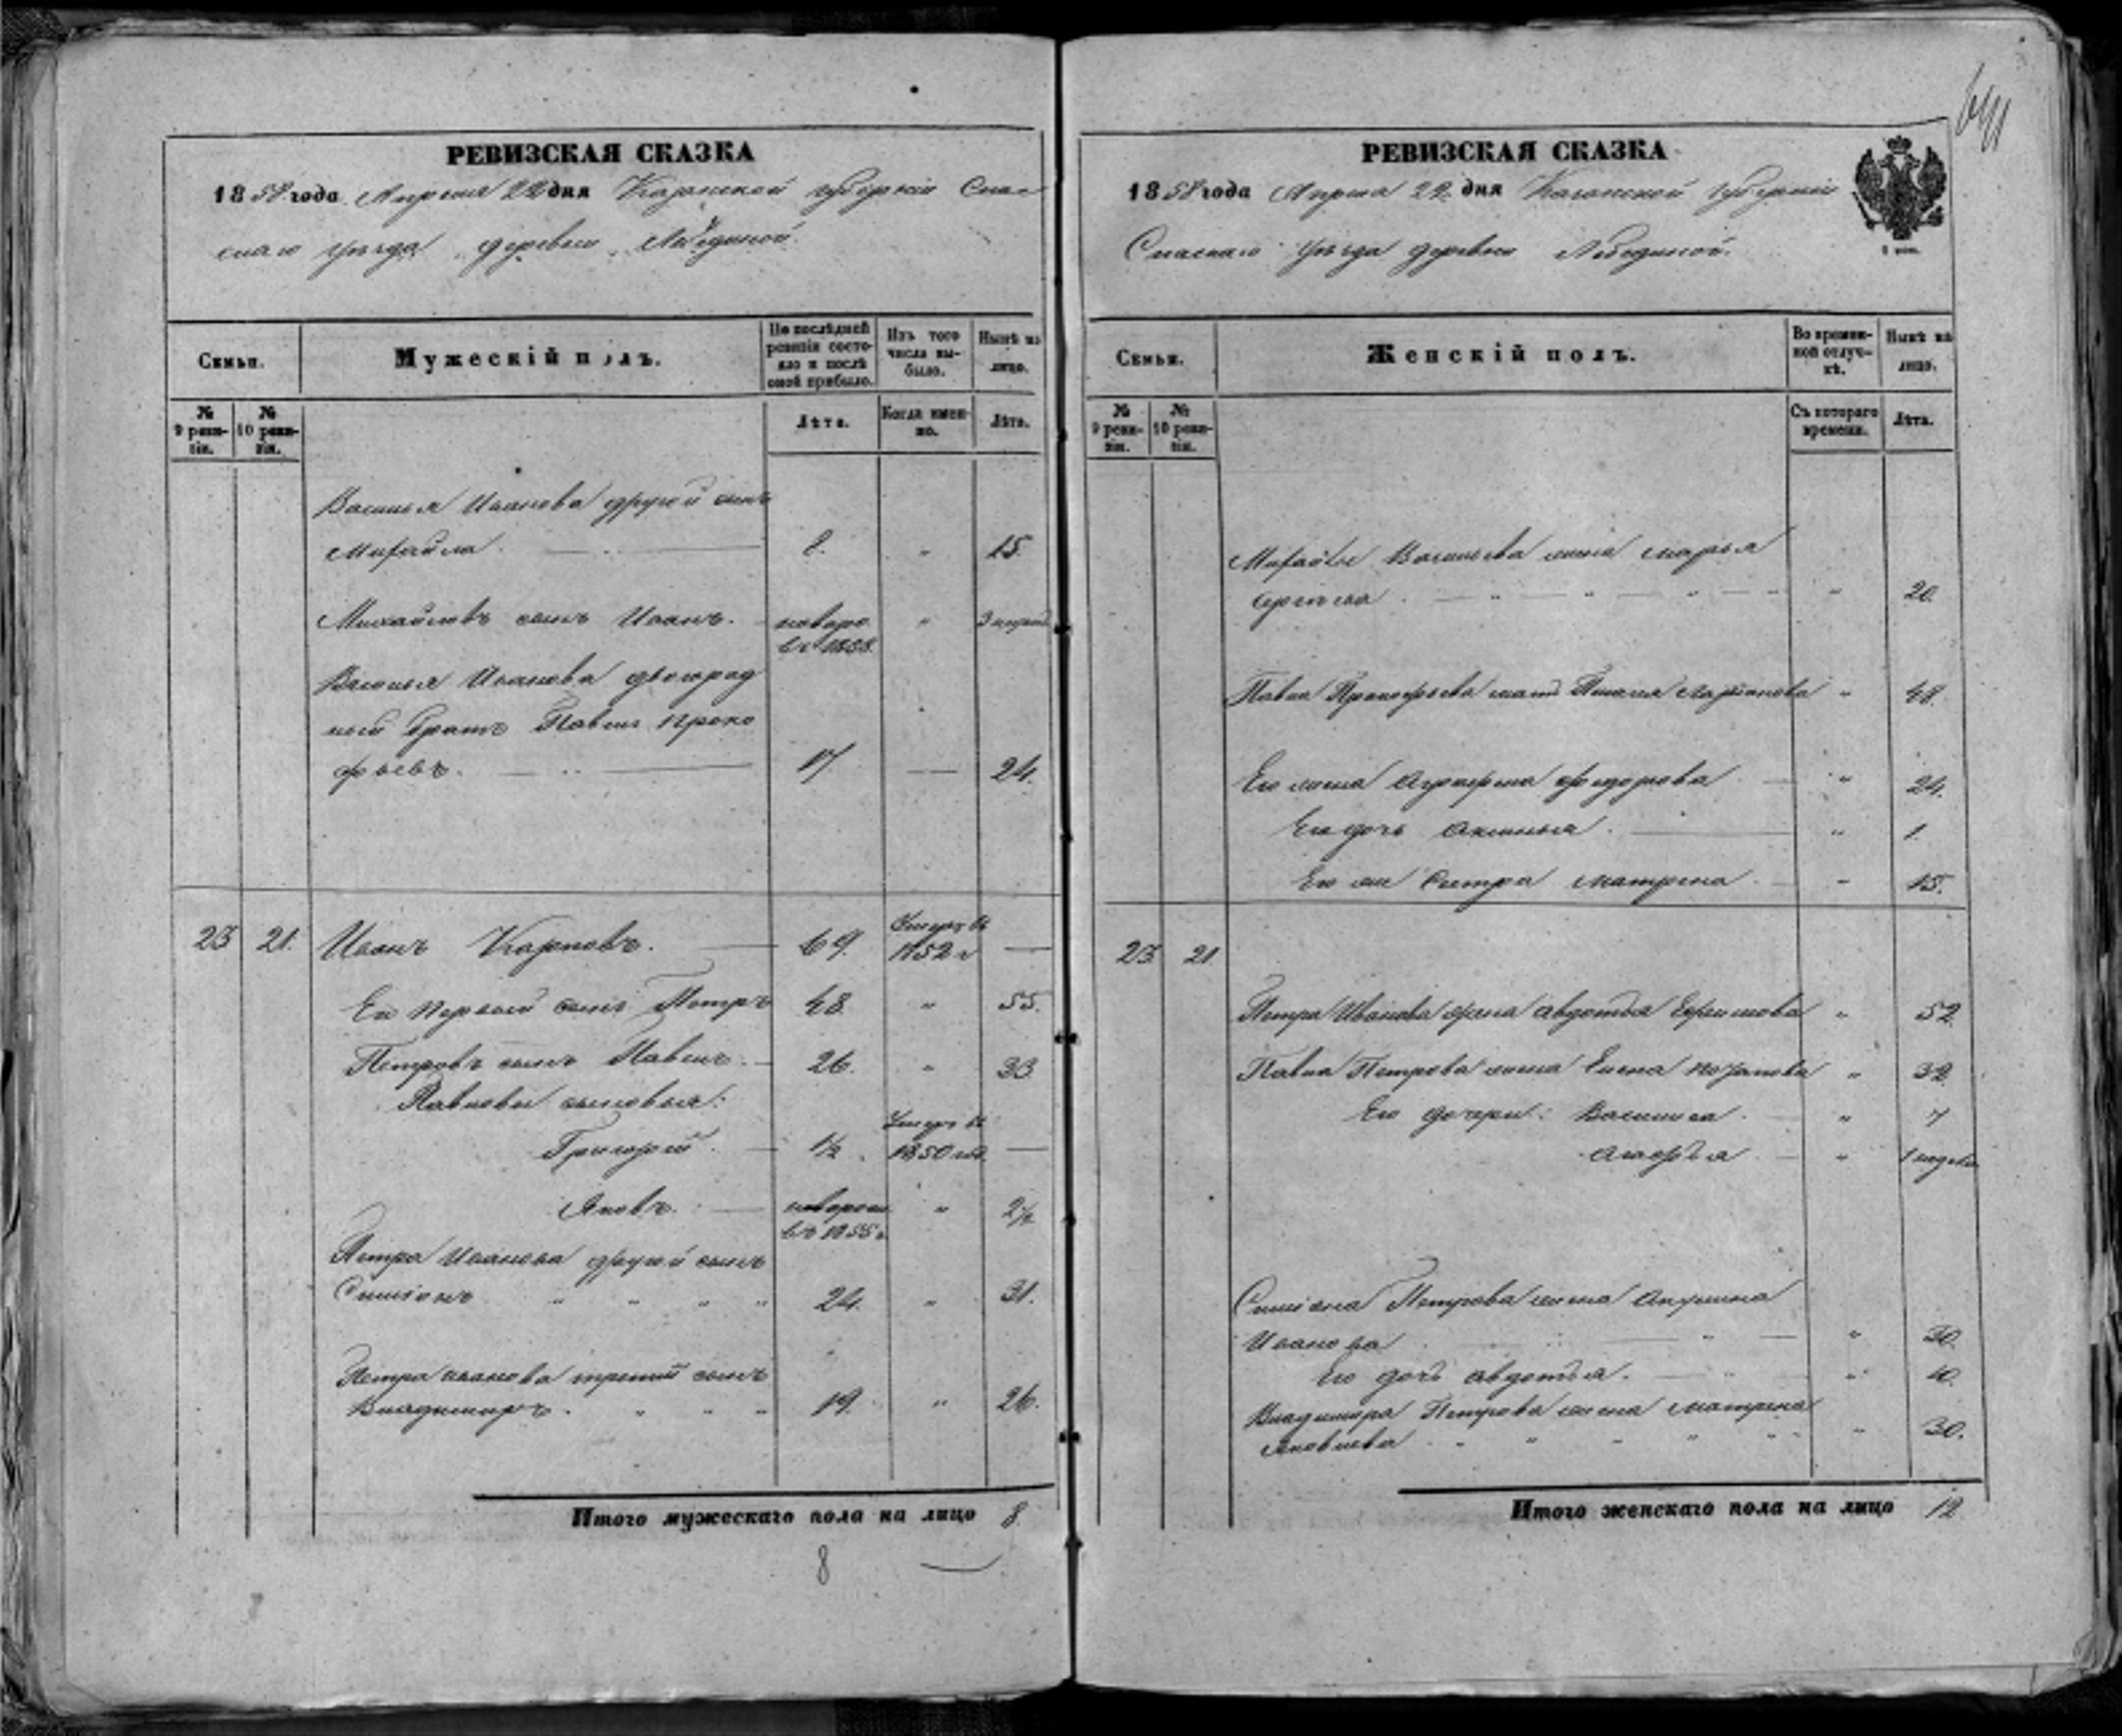 РЕВИЗСКАЯ СКАЗКА
1858 года Апреля 22 дня Казанской губернiи Спас
скаго уѣзда деревни Лебединой.
Семьи.
Мужескiй полъ.
По послѣдней ревизiи состояло и послѣ оной прибыло.
Изъ того числа выбыло.
Нынѣ на лицо.
№ 9 ревизiи.
№ 10 ревизiи.
Лѣта.
Когда именно.
Лѣта.
Василья Иванова другой сынъ
Михайла. 8. " 15.
Михайловъ сынъ Иванъ. новоро " 3 
въ 1858.
Василья Иванова двоюрод
ный братъ Павелъ Проко
фьевъ. 17 — 24.
23 21. Иванъ Карповъ. 69. Умеръ въ 1852 г —
Его первый сынъ Петръ 48. " 55.
Петровъ сынъ Павелъ. 26. " 33
Павловы сыновья:
Григорiй. 1/2. Умеръ въ 1850 —
Яковъ. новорож " 2 1/2
въ 1855 г
Петра Иванова другой сынъ
Симiонъ " " " " 24. " 31.
Петра Иванова третiй сынъ
Владимиръ. " " " 19. " 26.
Итого мужескаго пола на лицо 8.
8
641
РЕВИЗСКАЯ СКАЗКА
1858 года Апреля 22 дня Казанской губернiи
Спаскаго уѣзда деревни Лебединой.
Семьи.
Женскiй полъ.
Во временной отлучкѣ.
Нынѣ на лицо.
№ 9 ревизiи.
№ 10 ревизiи.
Съ котораго времени.
Лѣта.
Михайлы Васильева жена Марья
" 20.
Павла Прокофьева мать " 48.
Его жена Аграфена Федорова " 24.
Его дочь Аксинья. " 1.
Его же сестра Матрена. " 15.
23 21
Петра Иванова жена Авдотья Ефимова " 52
Павла Петрова жена Елена Потапова " 32
Его дочери: Василиса. " 7
Агафья. " 1 недели
Симiона Петрова жена Акулина
Иванова " 30.
Его дочь Авдотья. " 10.
Владимира Петрова жена Матрена
Яковлева " 30.
Итого женскаго пола на лицо 12